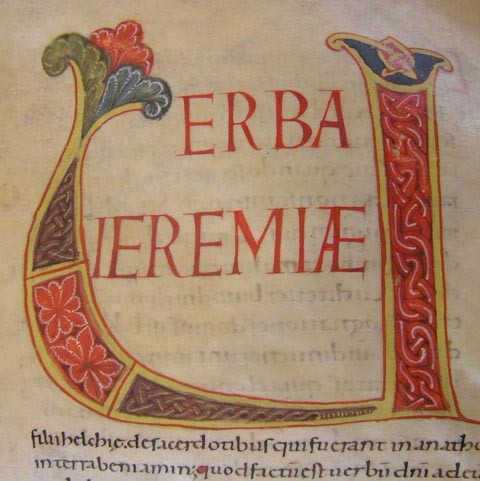 VERBA
IEREMIÆ
filii helchię. de sacerdotibus qui fuerant in anatho
in terra beniamin; quod factū est uerbū dnī ad eū